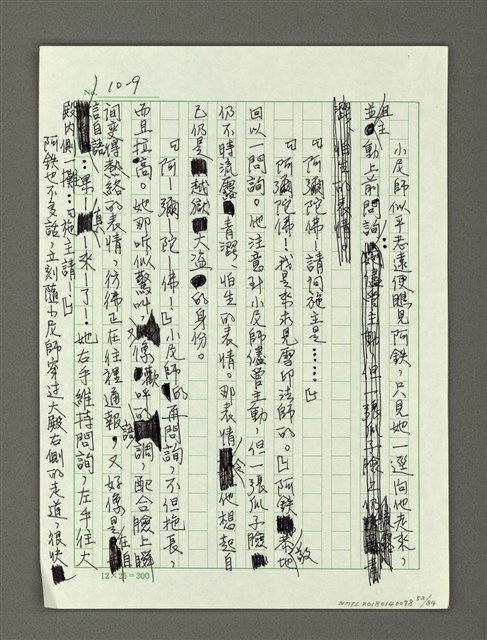 No. 10-9
小尼師似乎老遠便瞧見阿鉄,只見她一逕向他走來,
並且主動上前問詢……
「阿彌陀佛!請問施主是……」
「阿彌陀佛!我是來求見雪印法師的。」阿鉄恭敬地
回以一問詢。他注意到小尼師儘管主動,但一張瓜子臉
仍不時流露青澀,怕生的表情。那表情令他想起自
己仍是越獄大盜的身份。
「阿—彌—陀—佛!」小尼師的再問詢,不但拖長,
而且拉高。她那听似驚叫,又像歡呼的語調,配合臉上瞬
間变得熱絡的表情,彷彿正在往裡通報,又好像是在自
言自語:果—真—來—了—!她右手維持問詢,左手往大
殿內側一攤:「施主請—!」
阿鉄也不多話,立刻隨小尼師穿过大殿右側的走道,很快
12×25=300
NMTL20180140098 52/84